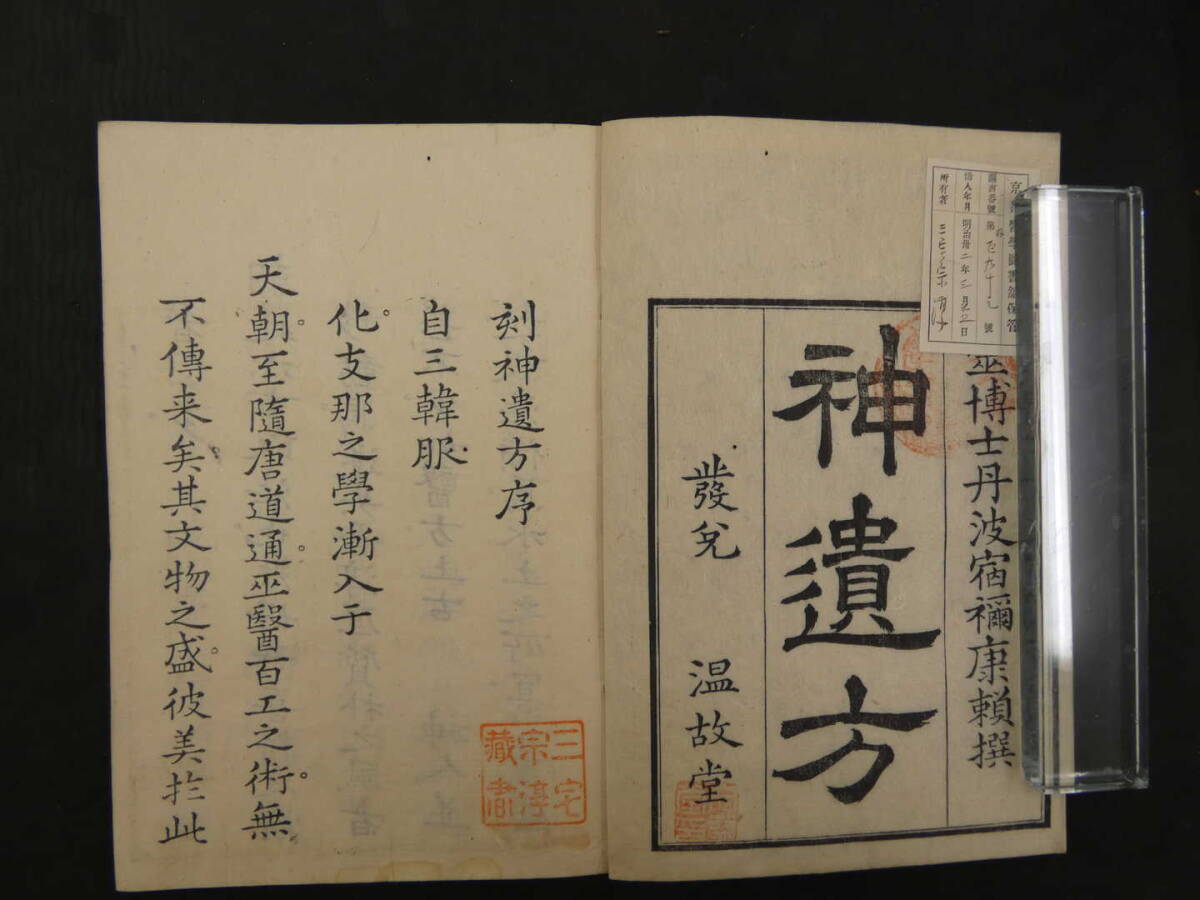 巫博士丹波宿禰康賴撰
神遺方
發兌 温故堂
圖書番號 第 號
借入年月 明治卅二年三月 日
所有者 三宅宗淳
刻神遺方序
自三韓服
化。支那之學漸入于
天朝。至隨唐道通。巫醫百工之術。無
不傳来矣。其文物之盛。彼美於此
三宅
宗淳
藏書